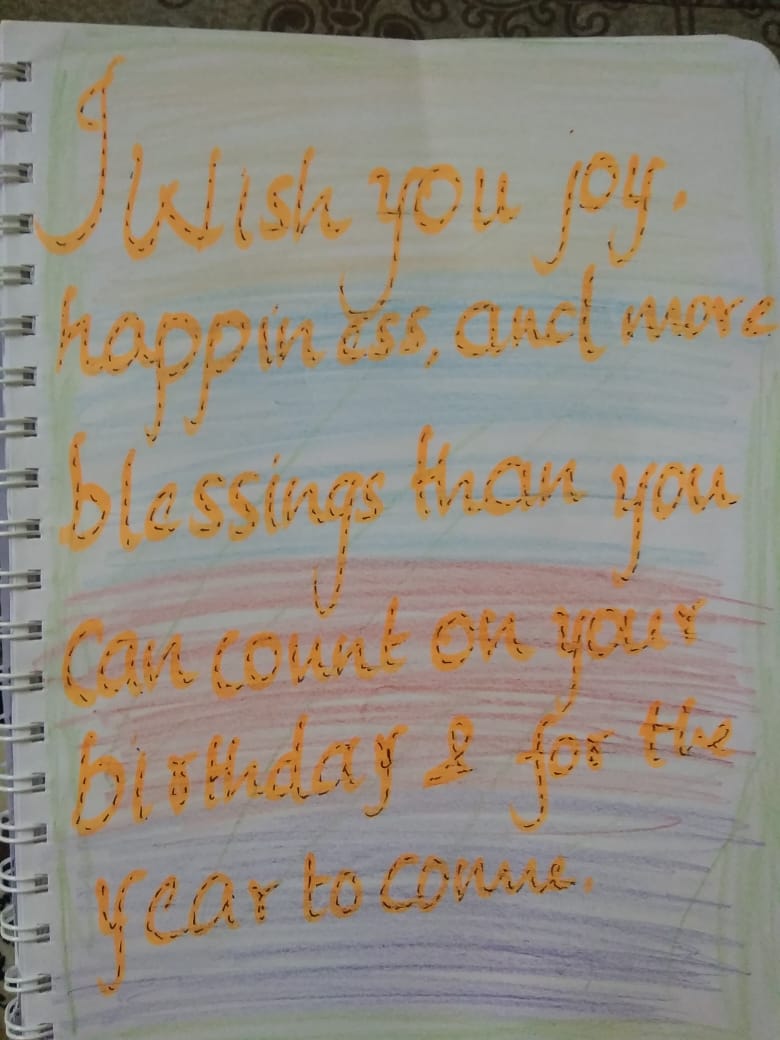 I Wish you joy.
happiness, and more
blessings than you
Can count on your
birthday & for the
year to come.